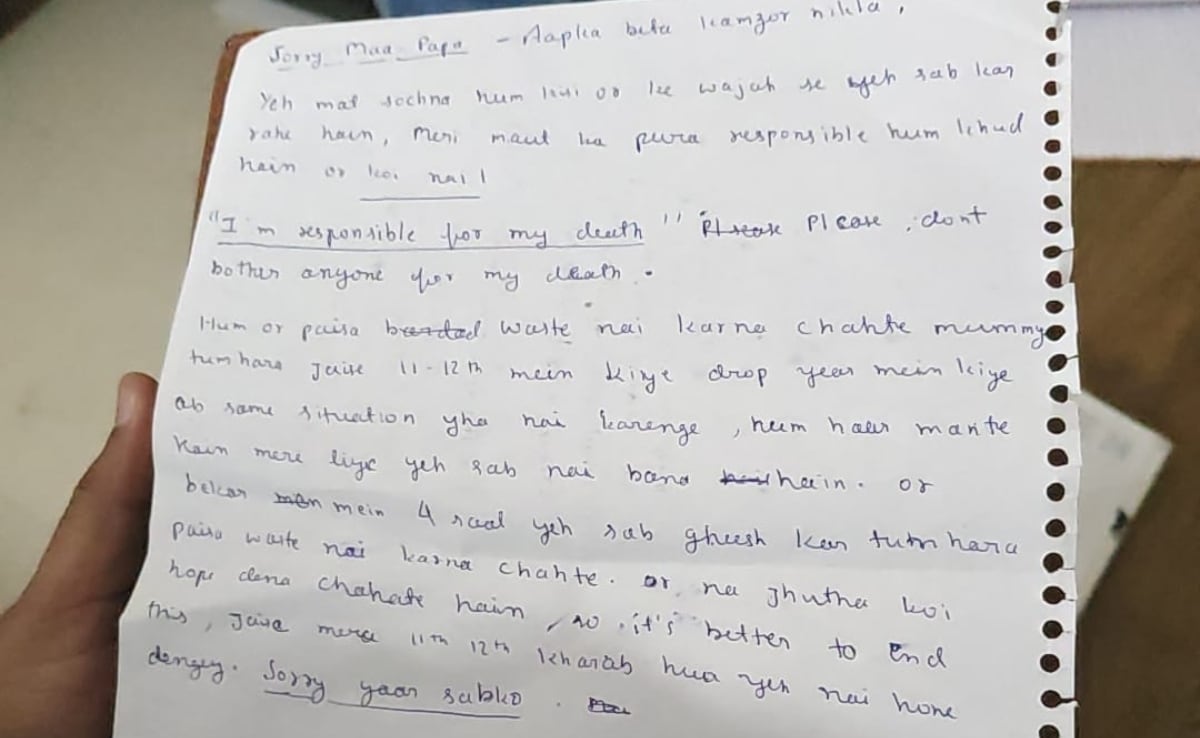 Sorry Maa Papa - Aapka beta kamzor nikla,
Yeh mat sochna hum kisi or ke wajah se yeh sab kar
rahe hain, meri maut ka pura responsible hum khud
hain or koi nai!
"I'm responsible for my death" Please Please dont
bother anyone for my death.
Hum or paisa waste nai karna chahte mummy
tumhara jaise 11-12th mein kiye drop year mein kiye
ab same situation yha nai karenge, hum haar mante
hain mere liye yeh sab nai bana hain. or
bekar mein 4 saal yeh sab gheesh kar tumhara
paisa waste nai karna chahte. or na jhutha koi
hope dena chahate hain, so it's better to end
this, jaise mera 11th 12th kharab hua yeh nai hone
dengey. Sorry yaar sabko.